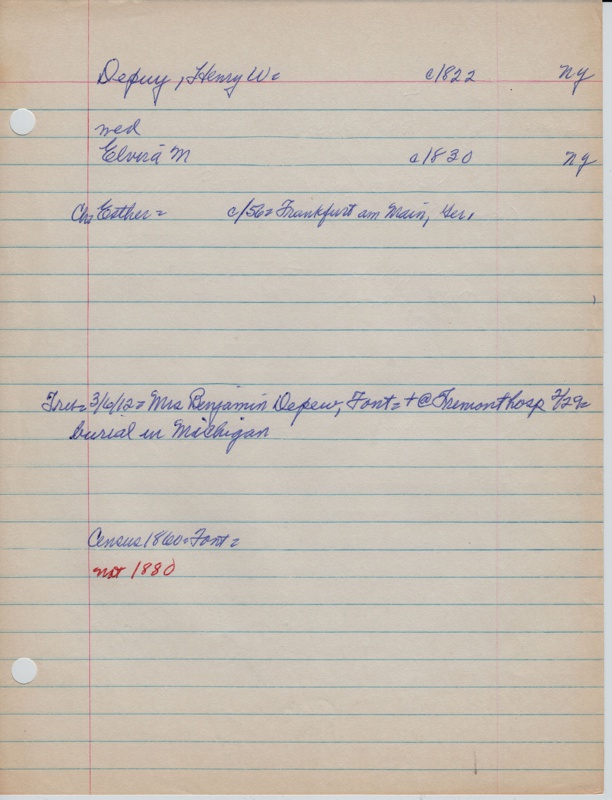 Depuy, Henry W= c/822 NY
wed
Elvira M c/830 NY
Ch: Esther= c/56= Frankfurt am Main, Ger.
3/6/12= Mrs Benjamin Depew, Font= + @ Fremont hosp 2/29=
burial in Michigan
Census 1860= Font=
not 1880